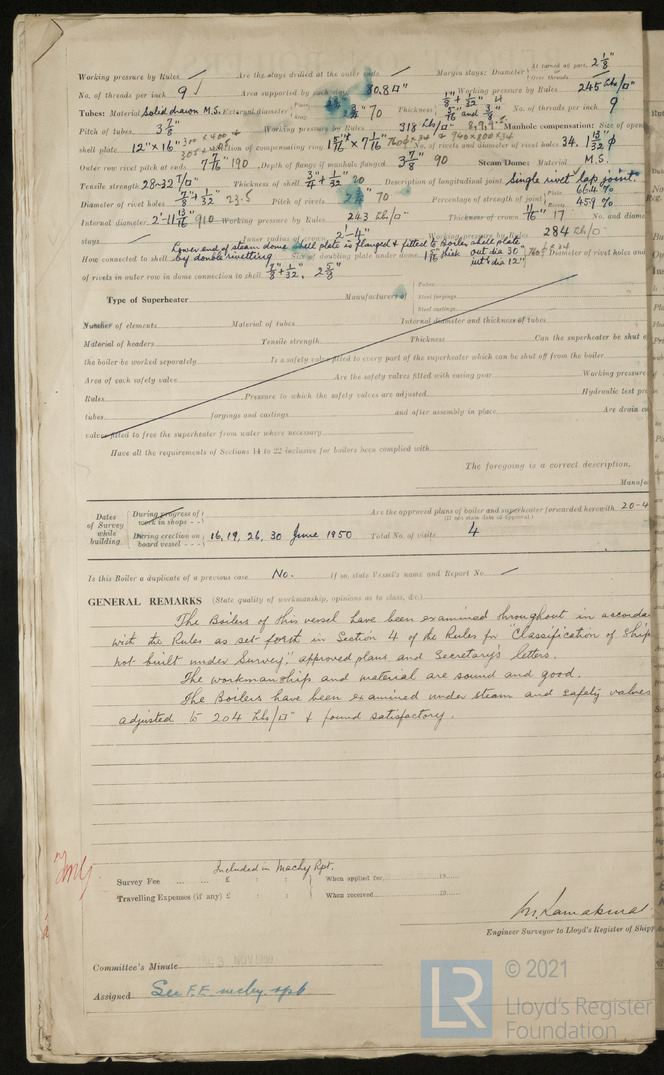 Working pressure by Rules Are the stays drilled at the outer ends Margin stays: Diameter At turned off part, or Over threads 2 1/8"
No. of threads per inch 9 Area supported by each stay 80.8 □" Working pressure by Rules 245 lbs/□"
Tubes: Material Solid drawn M.S. External diameter Plain Stay 70 Thickness 5/16" and 3/8" No. of threads per inch 9
Pitch of tubes 3 7/8" Working pressure by Rules 318 lbs/□" Manhole compensation: Size of open
shell plate 12" × 16" of compensating ring 1 5/16" × 7 7/16" No. of rivets and diameter of rivet holes 34. 1 13/32" φ
Outer row rivet pitch at ends 7 7/16" 190 Depth of flange if manhole flanged 3 7/8" 90 Steam Dome: Material M.S.
Tensile strength 28-32 T/□" Thickness of shell 3/4" + 1/32" 20 Description of longitudinal joint Single rivet lap joint.
Diameter of rivet holes 7/8" + 1/32" 23.5 Pitch of rivets 70 Percentage of strength of joint Plate 66.4 % Rivets 45.9 %
Internal diameter 2'-11 13/16" 910 Working pressure by Rules 243 lbs/□" Thickness of crown 11/16" 17 No. and diame
stays Inner radius of crown 2'-4" Working pressure by Rules 284 lbs/□"
How connected to shell Lower end of steam dome shell plate is flanged & fitted to Boiler shell plate by double rivetting Size of doubling plate under dome 1 5/16" thick out dia 30" int dia 12" Diameter of rivet holes and
of rivets in outer row in dome connection to shell 7/8" + 1/32", 2 5/8"
Type of Superheater Manufacturers of Tubes Steel forgings Steel castings
Number of elements Material of tubes Internal diameter and thickness of tubes
Material of headers Tensile strength Thickness Can the superheater be shut o
the boiler be worked separately Is a safety valve fitted to every part of the superheater which can be shut off from the boiler
Area of each safety valve Are the safety valves fitted with easing gear Working pressure
Rules Pressure to which the safety valves are adjusted Hydraulic test pre
tubes forgings and castings and after assembly in place Are drain c
valves fitted to free the superheater from water where necessary
Have all the requirements of Sections 14 to 22 inclusive for boilers been complied with
The foregoing is a correct description,
Manufa
Dates of Survey while building During progress of work in shops - - Are the approved plans of boiler and superheater forwarded herewith 20-4
(If not state date of approval.)
During erection on board vessel - - - 16, 19, 26, 30 June 1950 Total No. of visits 4
Is this Boiler a duplicate of a previous case No. If so, state Vessel's name and Report No.
GENERAL REMARKS (State quality of workmanship, opinions as to class, &c.)
The Boilers of this vessel have been examined throughout in accorda
with the Rules as set forth in Section 4 of the Rules for "Classification of Ship
not built under Survey", approved plans and Secretary's letters.
The workmanship and material are sound and good.
The Boilers have been examined under steam and safety valves
adjusted to 204 lbs/□" & found satisfactory.
Included in Machy Rpt.
Survey Fee ... ... £ : : When applied for, 19
Travelling Expenses (if any) £ : : When received 19
Engineer Surveyor to Lloyd's Register of Shipp
Committee's Minute
Assigned See F.E. mchy. rpt
© 2021
Lloyd's Register
Foundation
LR